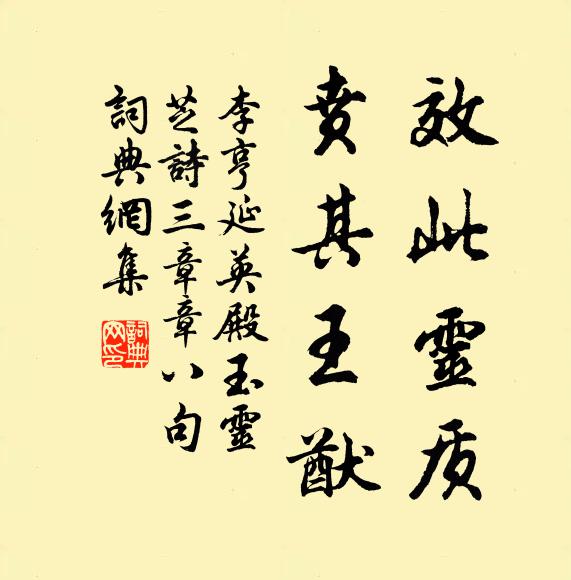 效此靈质
賁其王猷
李亨延英殿玉靈
芝詩三章章八句
詞典網集
詞典
网印